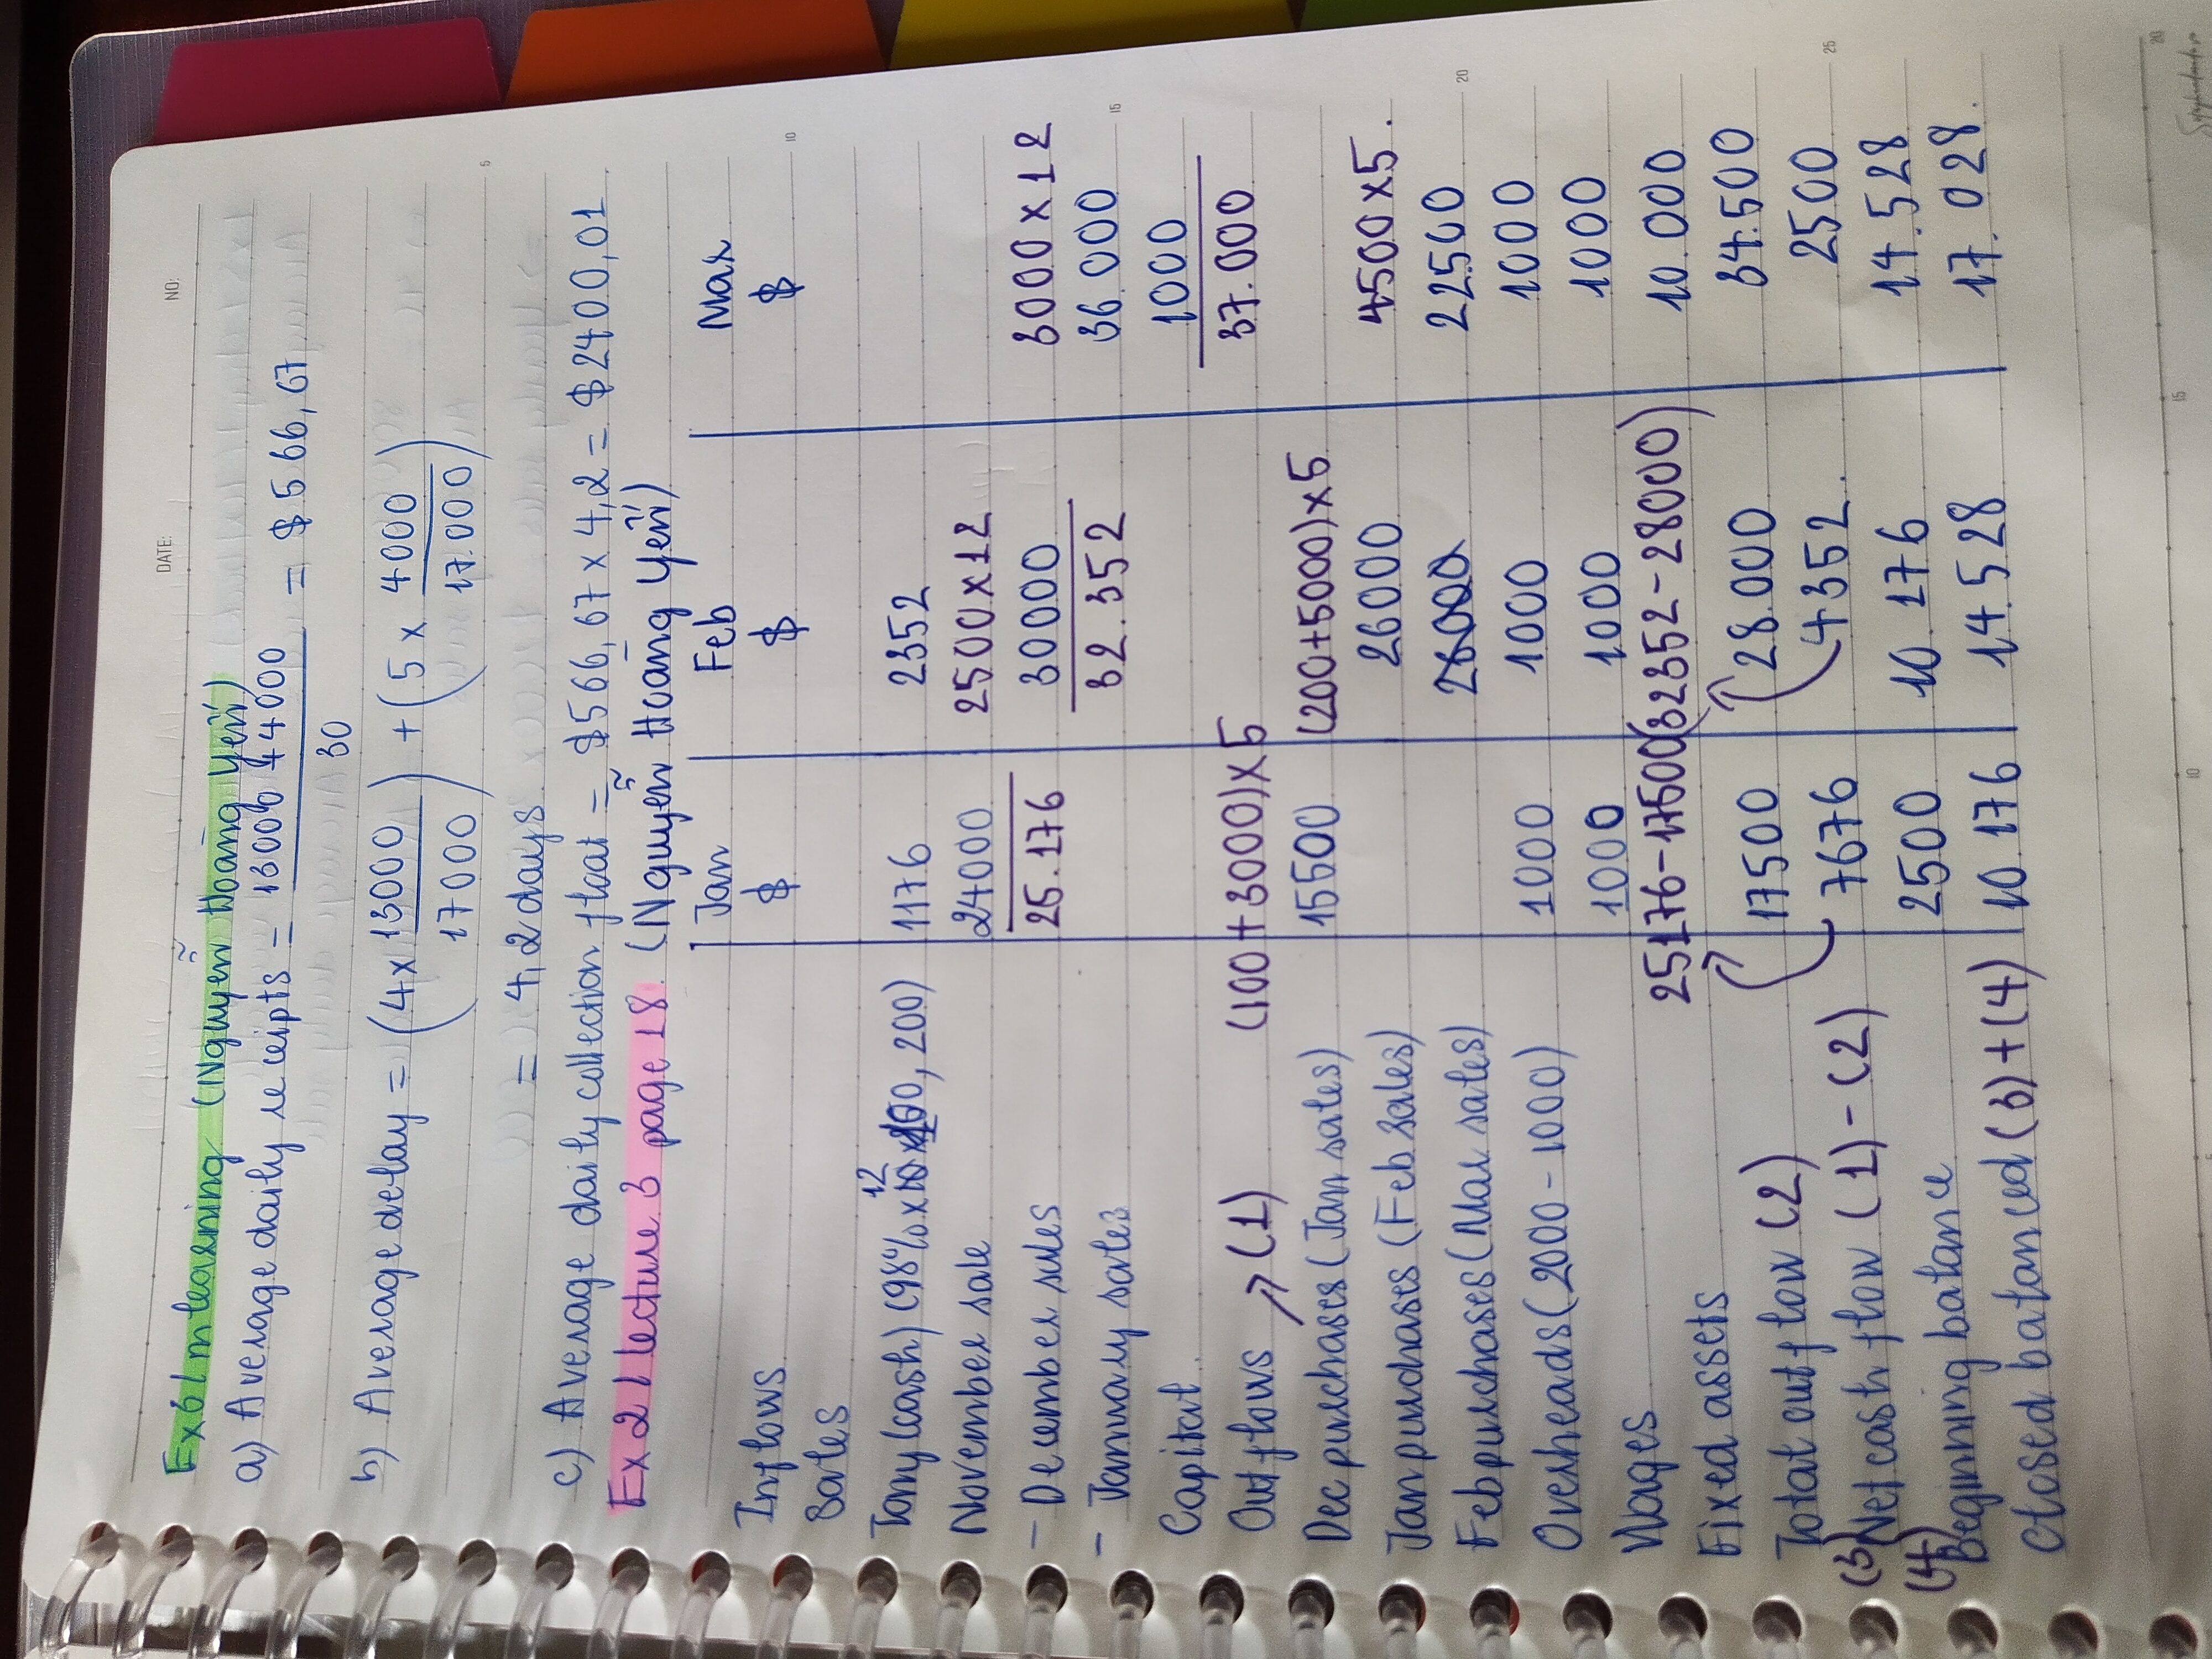 DATE: NO:
Ex 6 | n learning (Nguyễn Hoàng Yến)
a) Average daily receipts = 13000 + 4000 / 30 = $ 566,67
b) Average delay = (4 x 13000 / 17000) + (5 x 4000 / 17.000)
= 4,2 days
c) Average daily collection float = $566,67 x 4,2 = $ 2400,01
Ex 2 | lecture 3 page 18. (Nguyễn Hoàng Yến)
Jan Feb Mar
Inflows $ $ $
Sales
Tony (cash) (98% x 12 x 100, 200) 1176 2352
November sale 24000 2500 x 12
- December sales 25.176 30000 3000 x 12
- January sales 32.352 36 000
Capital 1000
Outflows → (1) (100 + 3000) x 5 37.000
Dec purchases (Jan sales) 15500 (200+5000) x 5
Jan purchases (Feb sales) 26000 4500 x 5.
Feb purchases (Mar sales) 26000 22500
Overheads (2000 - 1000) 1000 1000 1000
Wages 1000 1000 1000
Fixed assets 25176 - 17500 (32352 - 28000) 10.000
Total outflow (2) 17500 28.000 34.500
(3) Net cash flow (1) - (2) 7676 4352. 2500
(4) Beginning balance 2500 10 176 14.528
Closed balanced (3) + (4) 10 176 14 528 17.028.